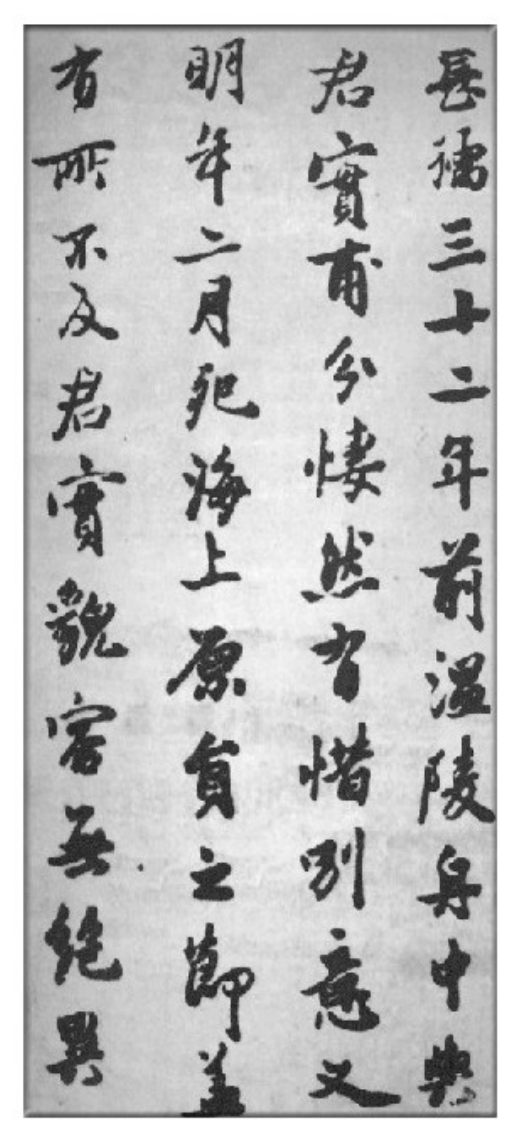 長孺三十二年前溫陵舟中與
君實甫分悽然有惜別意又
明年二月死海上原員之節蓋
有所不及君實貌容無絕異